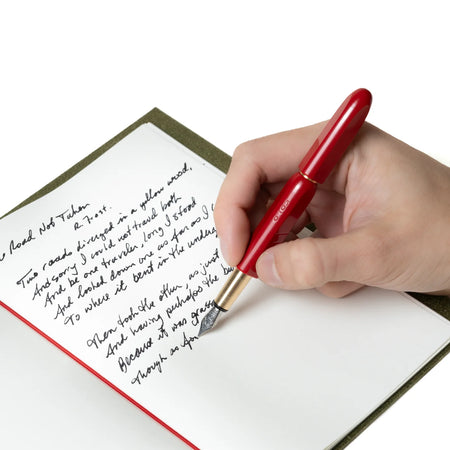 Road Not Taken
R. Frost.
Two roads diverged in a yellow wood,
And sorry I could not travel both
And be one traveler, long I stood
And looked down one as far as I
To where it bent in the under
Then took the other, as just
And having perhaps the b
Because it was grass
Though as for